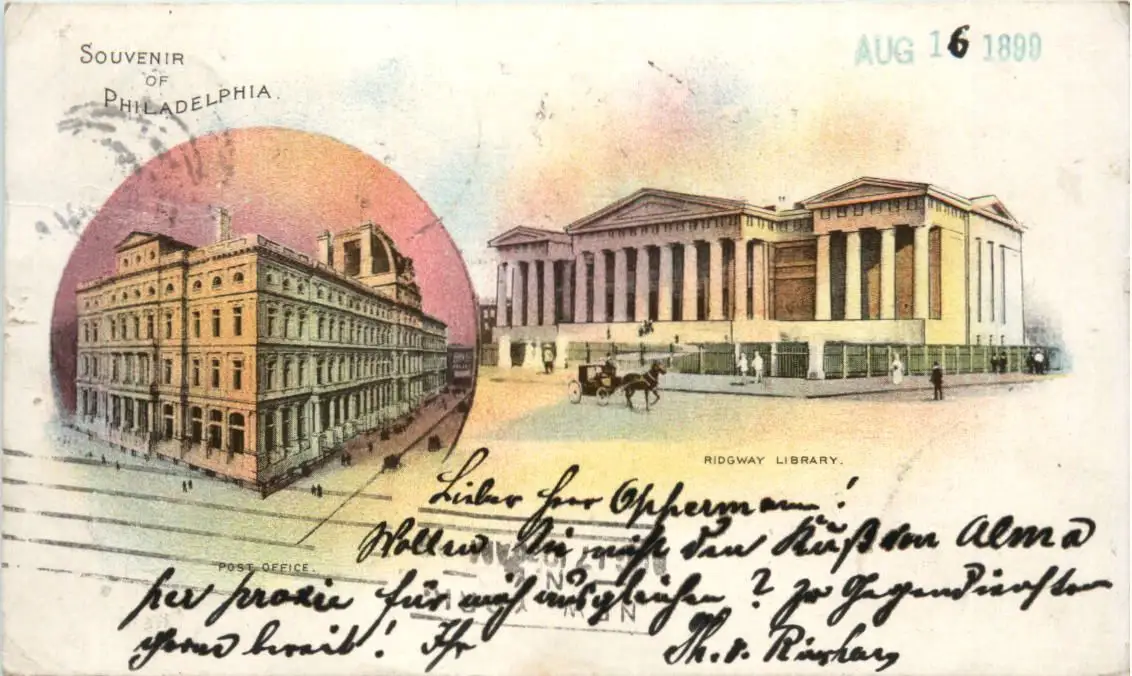 SOUVENIR
OF
PHILADELPHIA.
AUG 16 1899
RIDGWAY LIBRARY.
POST OFFICE.
Lieber Herr Oppermann!
Wollen Sie nicht den Kuß von Alma
per procura für mich ausgleichen? Zu Gegendiensten
gerne bereit! Ihr
Th. v.